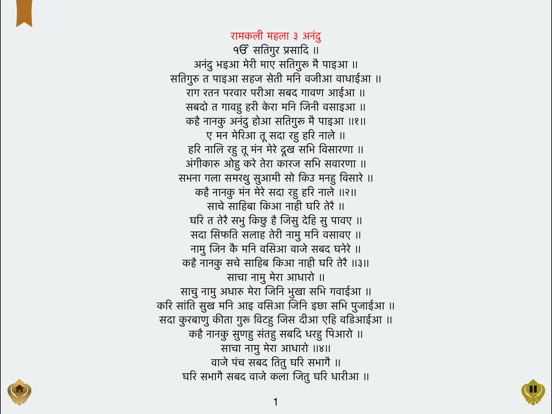 रामकली महला ३ अनंदु
ੴ सतिगुर प्रसादि ॥
अनंदु भइआ मेरी माए सतिगुरू मै पाइआ ॥
सतिगुरु त पाइआ सहज सेती मनि वजीआ वाधाईआ ॥
राग रतन परवार परीआ सबद गावण आईआ ॥
सबदो त गावहु हरी केरा मनि जिनी वसाइआ ॥
कहै नानकु अनंदु होआ सतिगुरू मै पाइआ ॥१॥
ए मन मेरिआ तू सदा रहु हरि नाले ॥
हरि नालि रहु तू मंन मेरे दूख सभि विसारणा ॥
अंगीकारु ओहु करे तेरा कारज सभि सवारणा ॥
सभना गला समरथु सुआमी सो किउ मनहु विसारे ॥
कहै नानकु मंन मेरे सदा रहु हरि नाले ॥२॥
साचे साहिबा किआ नाही घरि तेरै ॥
घरि त तेरै सभु किछु है जिसु देहि सु पावए ॥
सदा सिफति सलाह तेरी नामु मनि वसावए ॥
नामु जिन कै मनि वसिआ वाजे सबद घनेरे ॥
कहै नानकु सचे साहिब किआ नाही घरि तेरै ॥३॥
साचा नामु मेरा आधारो ॥
साचु नामु अधारु मेरा जिनि भुखा सभि गवाईआ ॥
करि सांति सुख मनि आइ वसिआ जिनि इछा सभि पुजाईआ ॥
सदा कुरबाणु कीता गुरू विटहु जिस दीआ एहि वडिआईआ ॥
कहै नानकु सुणहु संतहु सबदि धरहु पिआरो ॥
साचा नामु मेरा आधारो ॥४॥
वाजे पंच सबद तितु घरि सभागै ॥
घरि सभागै सबद वाजे कला जितु घरि धारीआ ॥
1